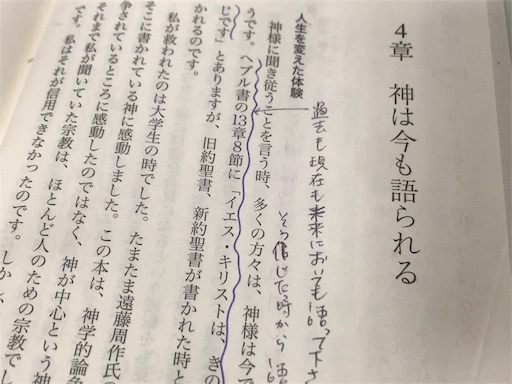 4章 神は今も語られる
過去も現在も未来においても語って下さ
その信じた時から 語
人生を変えた体験
神様に聞き従うことを言う時、多くの方々は、神様は今で
うです。ヘブル書の13章8節に「イエス・キリストは、きの
じです」とありますが、旧約聖書、新約聖書が書かれた時と
かれるのです。
私が救われたのは大学生の時でした。たまたま遠藤周作氏の
そこに書かれている神に感動しました。この本は、神学的論争
争されているところに感動したのではなく、神が中心という神
それまで私が聞いていた宗教は、ほとんど人のための宗教でし
です。私はそれが信用できなかったのです。しかし